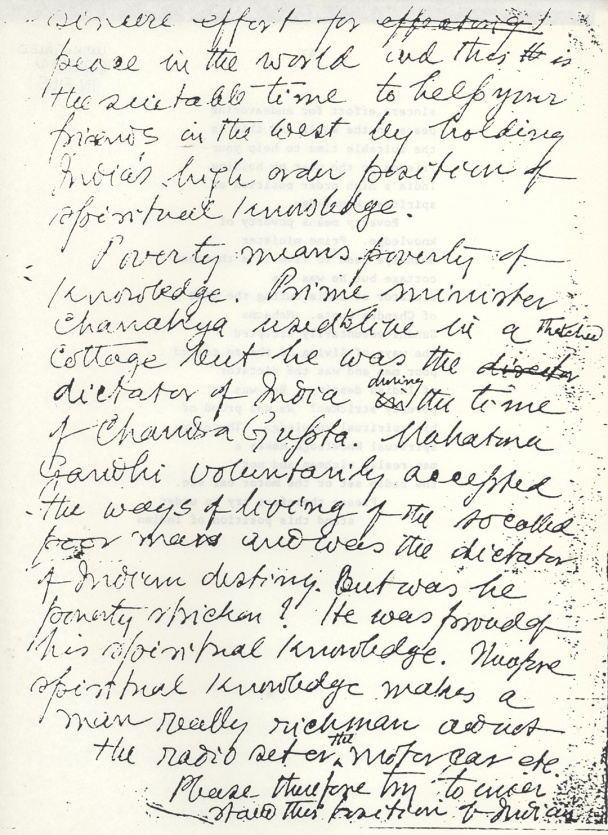 sincere effort for effecting
peace in the world and this is
the suitable time to help your
friends in the west by holding
India's high order position of
spiritual knowledge.
Poverty means poverty of
knowledge. Prime minister
Chanakya used to live in a thatched
cottage but he was the director
dictator of India during the time
of Chandra Gupta. Mahatma
Gandhi voluntarily accepted
the ways of living of the so called
poor man and was the dictator
of Indian destiny. But was he
poverty stricken? He was proud of
his spiritual knowledge. Therefore
spiritual knowledge makes a
man really richman and not
the radio set or the motor car etc.
Please therefore try to under
stand this position of Indian